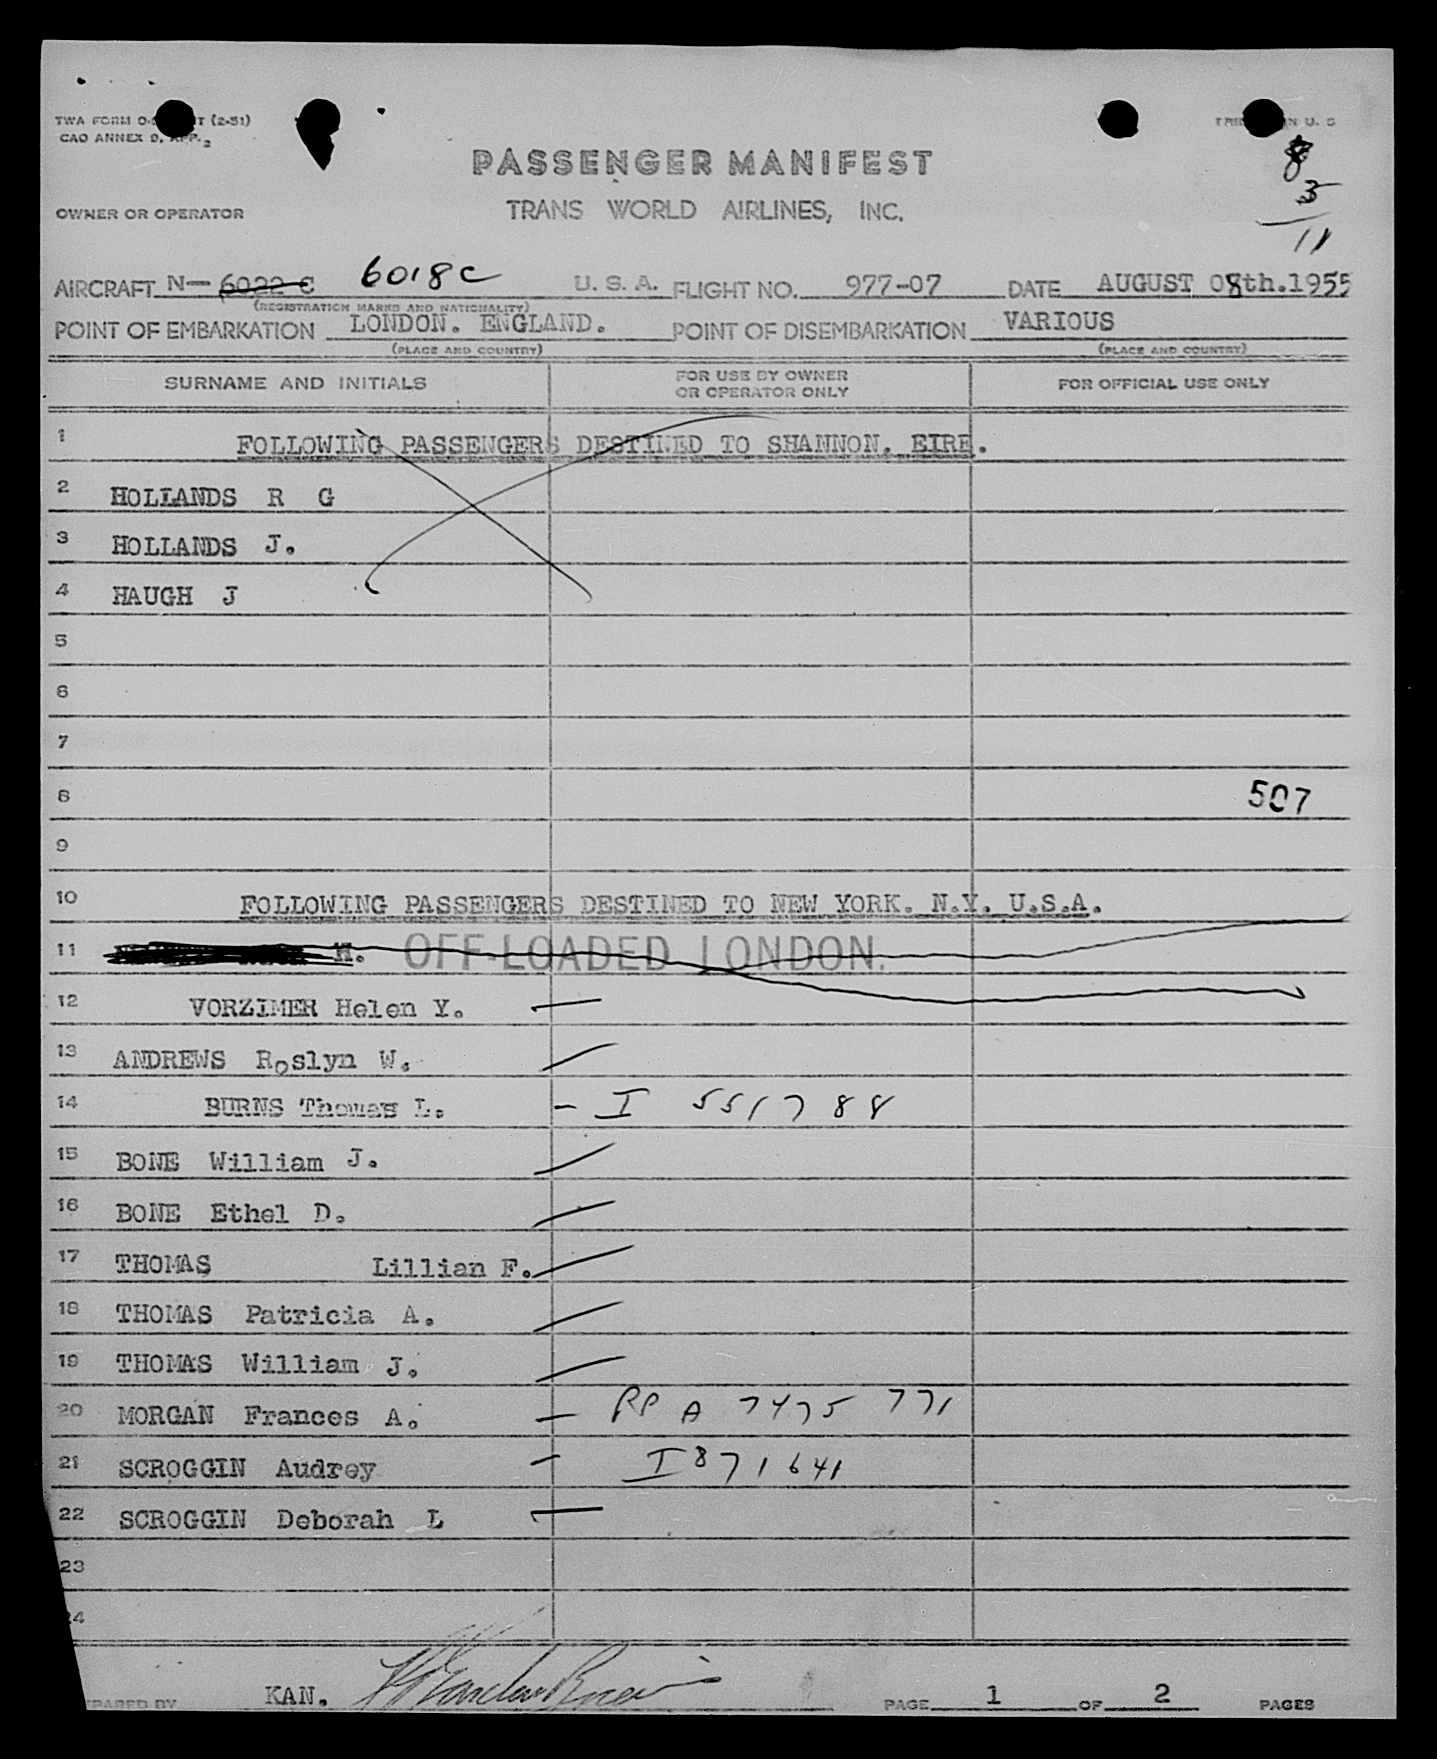 TWA FORM O- T (2-51)
CAO ANNEX 9, APP. 2
IN U. S
8
3
11
PASSENGER MANIFEST
OWNER OR OPERATOR
TRANS WORLD AIRLINES, INC.
AIRCRAFT N- 6022 C 6018C U. S. A. FLIGHT NO. 977-07 DATE AUGUST 08th.1955
(REGISTRATION MARKS AND NATIONALITY)
POINT OF EMBARKATION LONDON. ENGLAND. POINT OF DISEMBARKATION VARIOUS
(PLACE AND COUNTRY) (PLACE AND COUNTRY)
SURNAME AND INITIALS FOR USE BY OWNER OR OPERATOR ONLY FOR OFFICIAL USE ONLY
1 FOLLOWING PASSENGERS DESTINED TO SHANNON. EIRE.
2 HOLLANDS R G
3 HOLLANDS J.
4 HAUGH J
5
6
7
8 507
9
10 FOLLOWING PASSENGERS DESTINED TO NEW YORK. N.Y. U.S.A.
11 H. OFF-LOADED LONDON.
12 VORZIMER Helen Y.
13 ANDREWS Roslyn W.
14 BURNS Thomas L. - I 551788
15 BONE William J.
16 BONE Ethel D.
17 THOMAS Lillian F.
18 THOMAS Patricia A.
19 THOMAS William J.
20 MORGAN Frances A. - RP A 7475 771
21 SCROGGIN Audrey - I 871641
22 SCROGGIN Deborah L
23
24
PREPARED BY KAN. PAGE 1 OF 2 PAGES